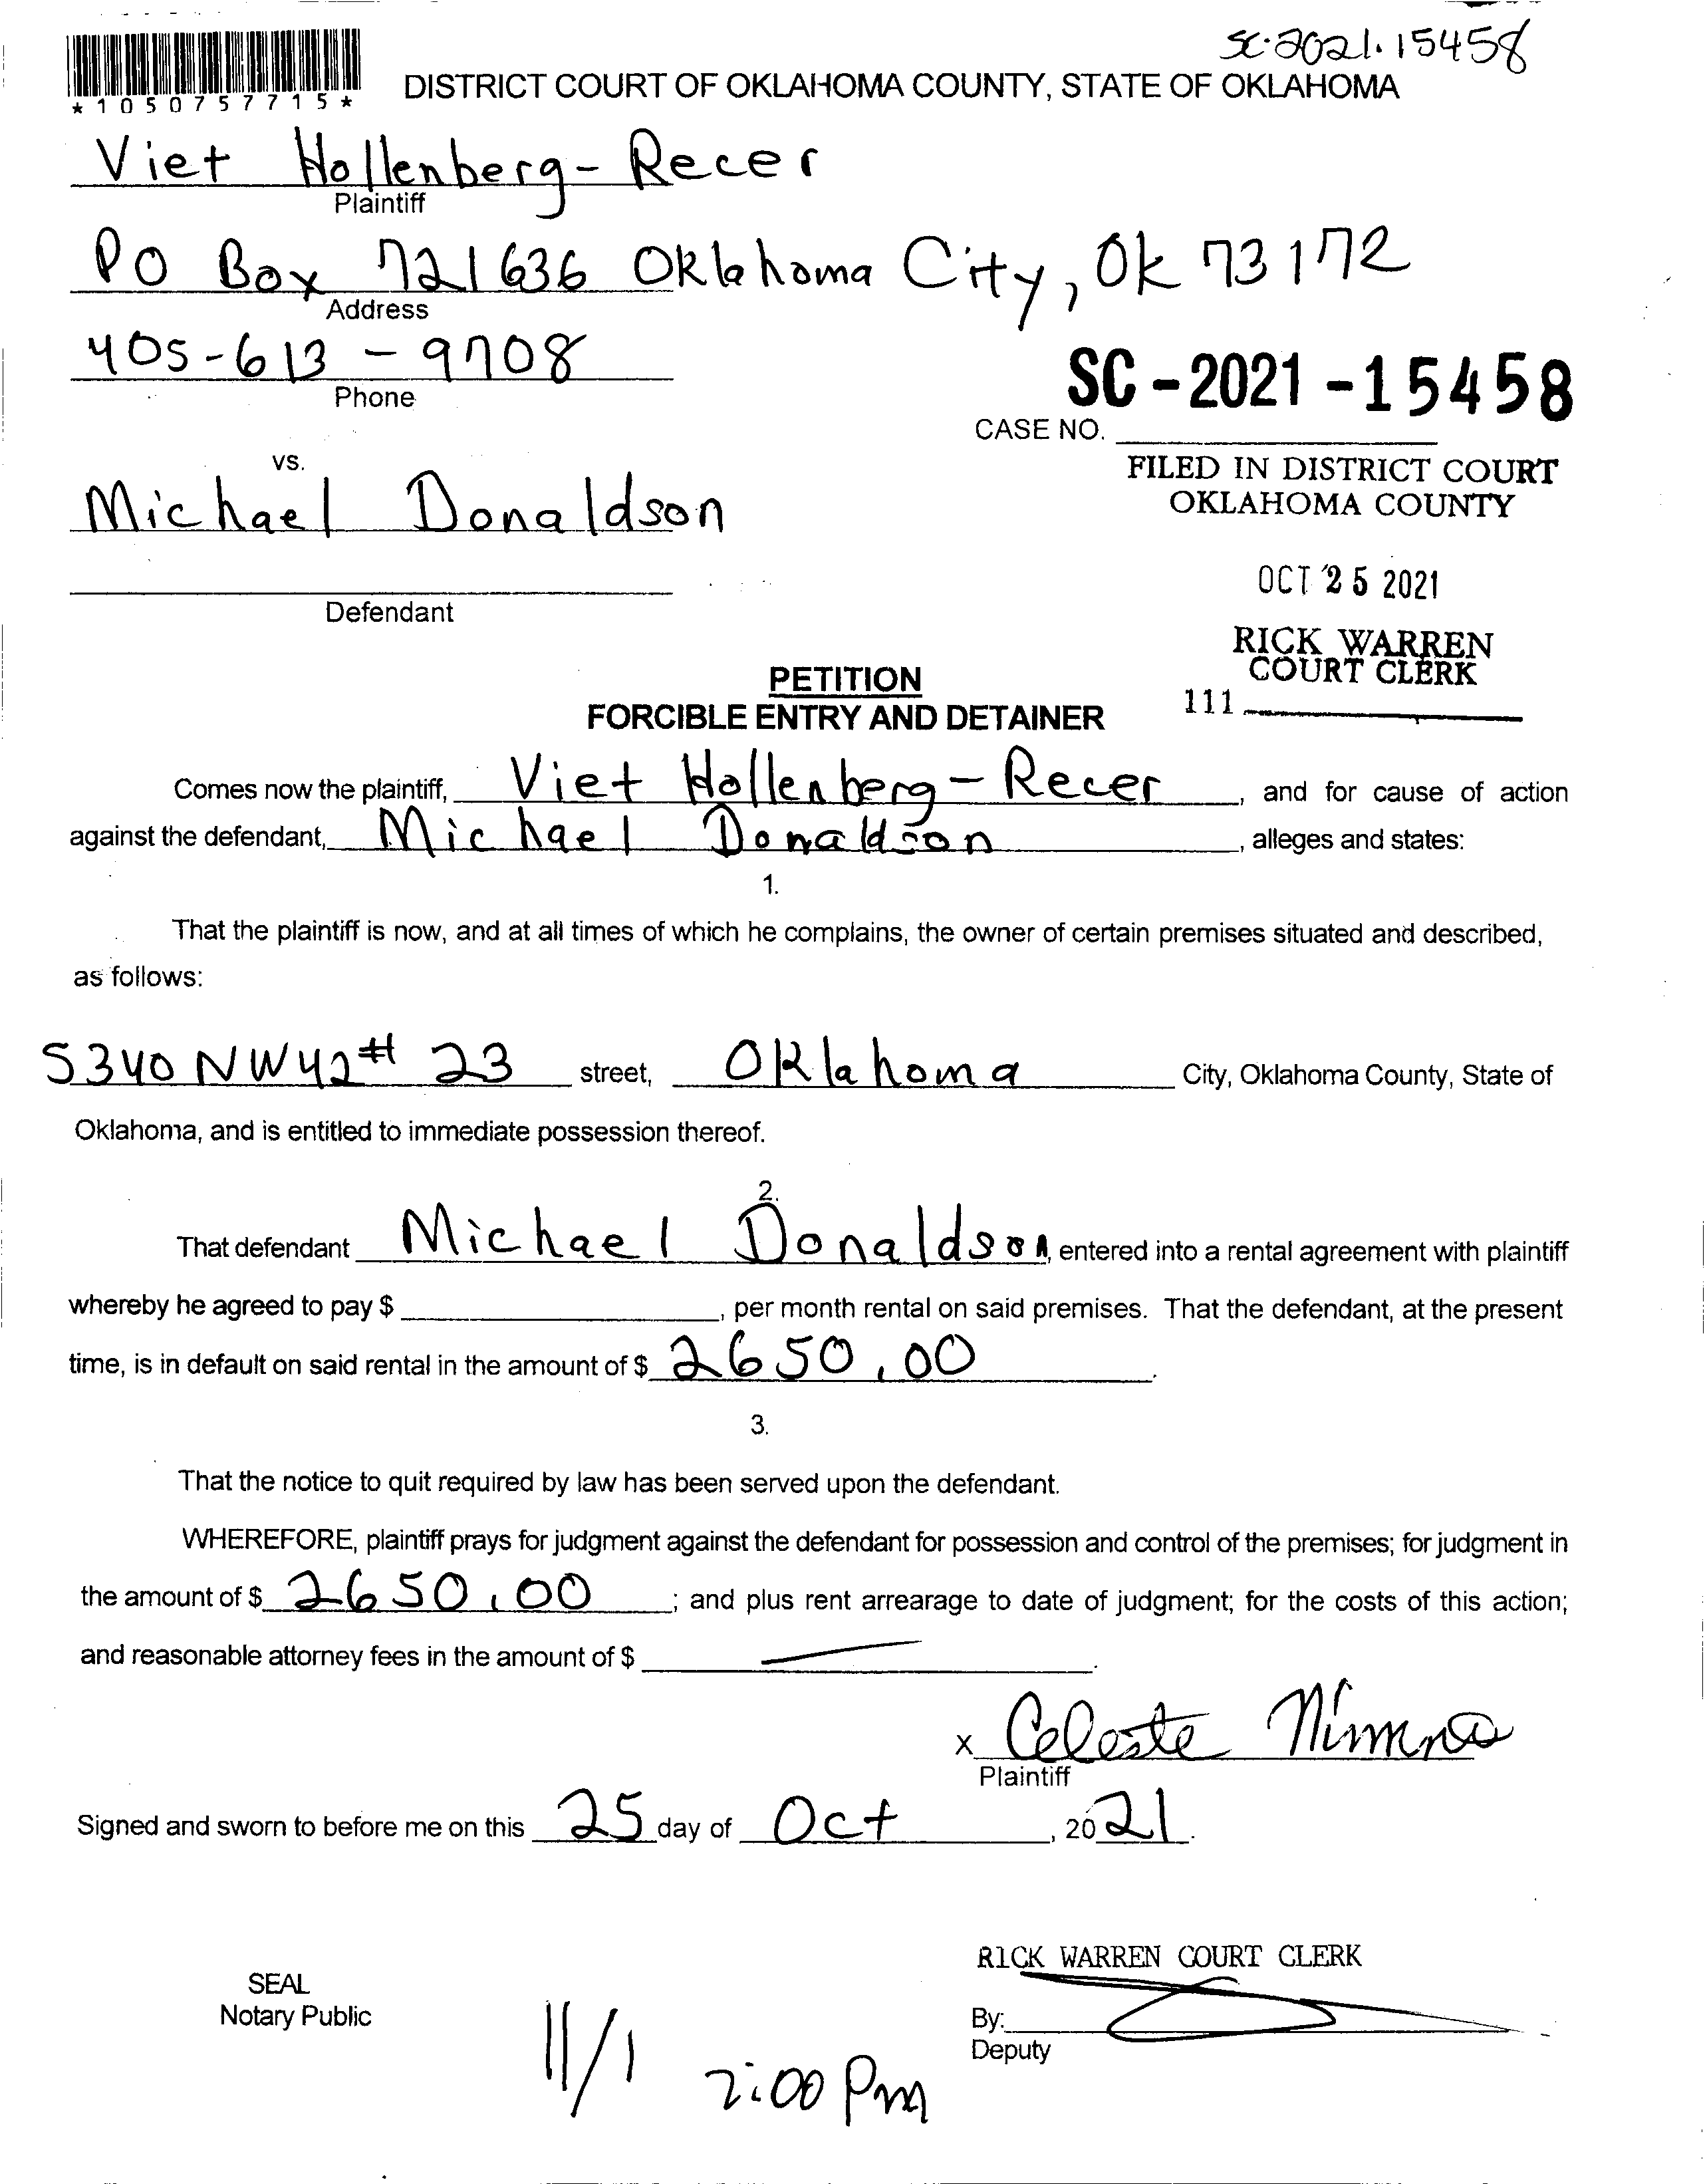 SC-2021-15458
*1050757715*
DISTRICT COURT OF OKLAHOMA COUNTY, STATE OF OKLAHOMA
Viet Hollenberg-Recer
Plaintiff
PO Box 721636 Oklahoma City, Ok 73172
Address
405-613-9708
Phone
SC-2021-15458
CASE NO.
vs.
FILED IN DISTRICT COURT
OKLAHOMA COUNTY
Michael Donaldson
OCT 25 2021
Defendant
RICK WARREN
COURT CLERK
111
PETITION
FORCIBLE ENTRY AND DETAINER
Comes now the plaintiff, Viet Hollenberg-Recer, and for cause of action
against the defendant, Michael Donaldson, alleges and states:
1.
That the plaintiff is now, and at all times of which he complains, the owner of certain premises situated and described,
as follows:
5340 NW42# 23 street, Oklahoma City, Oklahoma County, State of
Oklahoma, and is entitled to immediate possession thereof.
2.
That defendant Michael Donaldson, entered into a rental agreement with plaintiff
whereby he agreed to pay $ , per month rental on said premises. That the defendant, at the present
time, is in default on said rental in the amount of $ 2650.00.
3.
That the notice to quit required by law has been served upon the defendant.
WHEREFORE, plaintiff prays for judgment against the defendant for possession and control of the premises; for judgment in
the amount of $ 2650.00; and plus rent arrearage to date of judgment; for the costs of this action;
and reasonable attorney fees in the amount of $ —.
x Celeste
Plaintiff
Signed and sworn to before me on this 25 day of Oct, 2021.
RICK WARREN COURT CLERK
SEAL
Notary Public
By:
Deputy
11/1 2:00 Pm